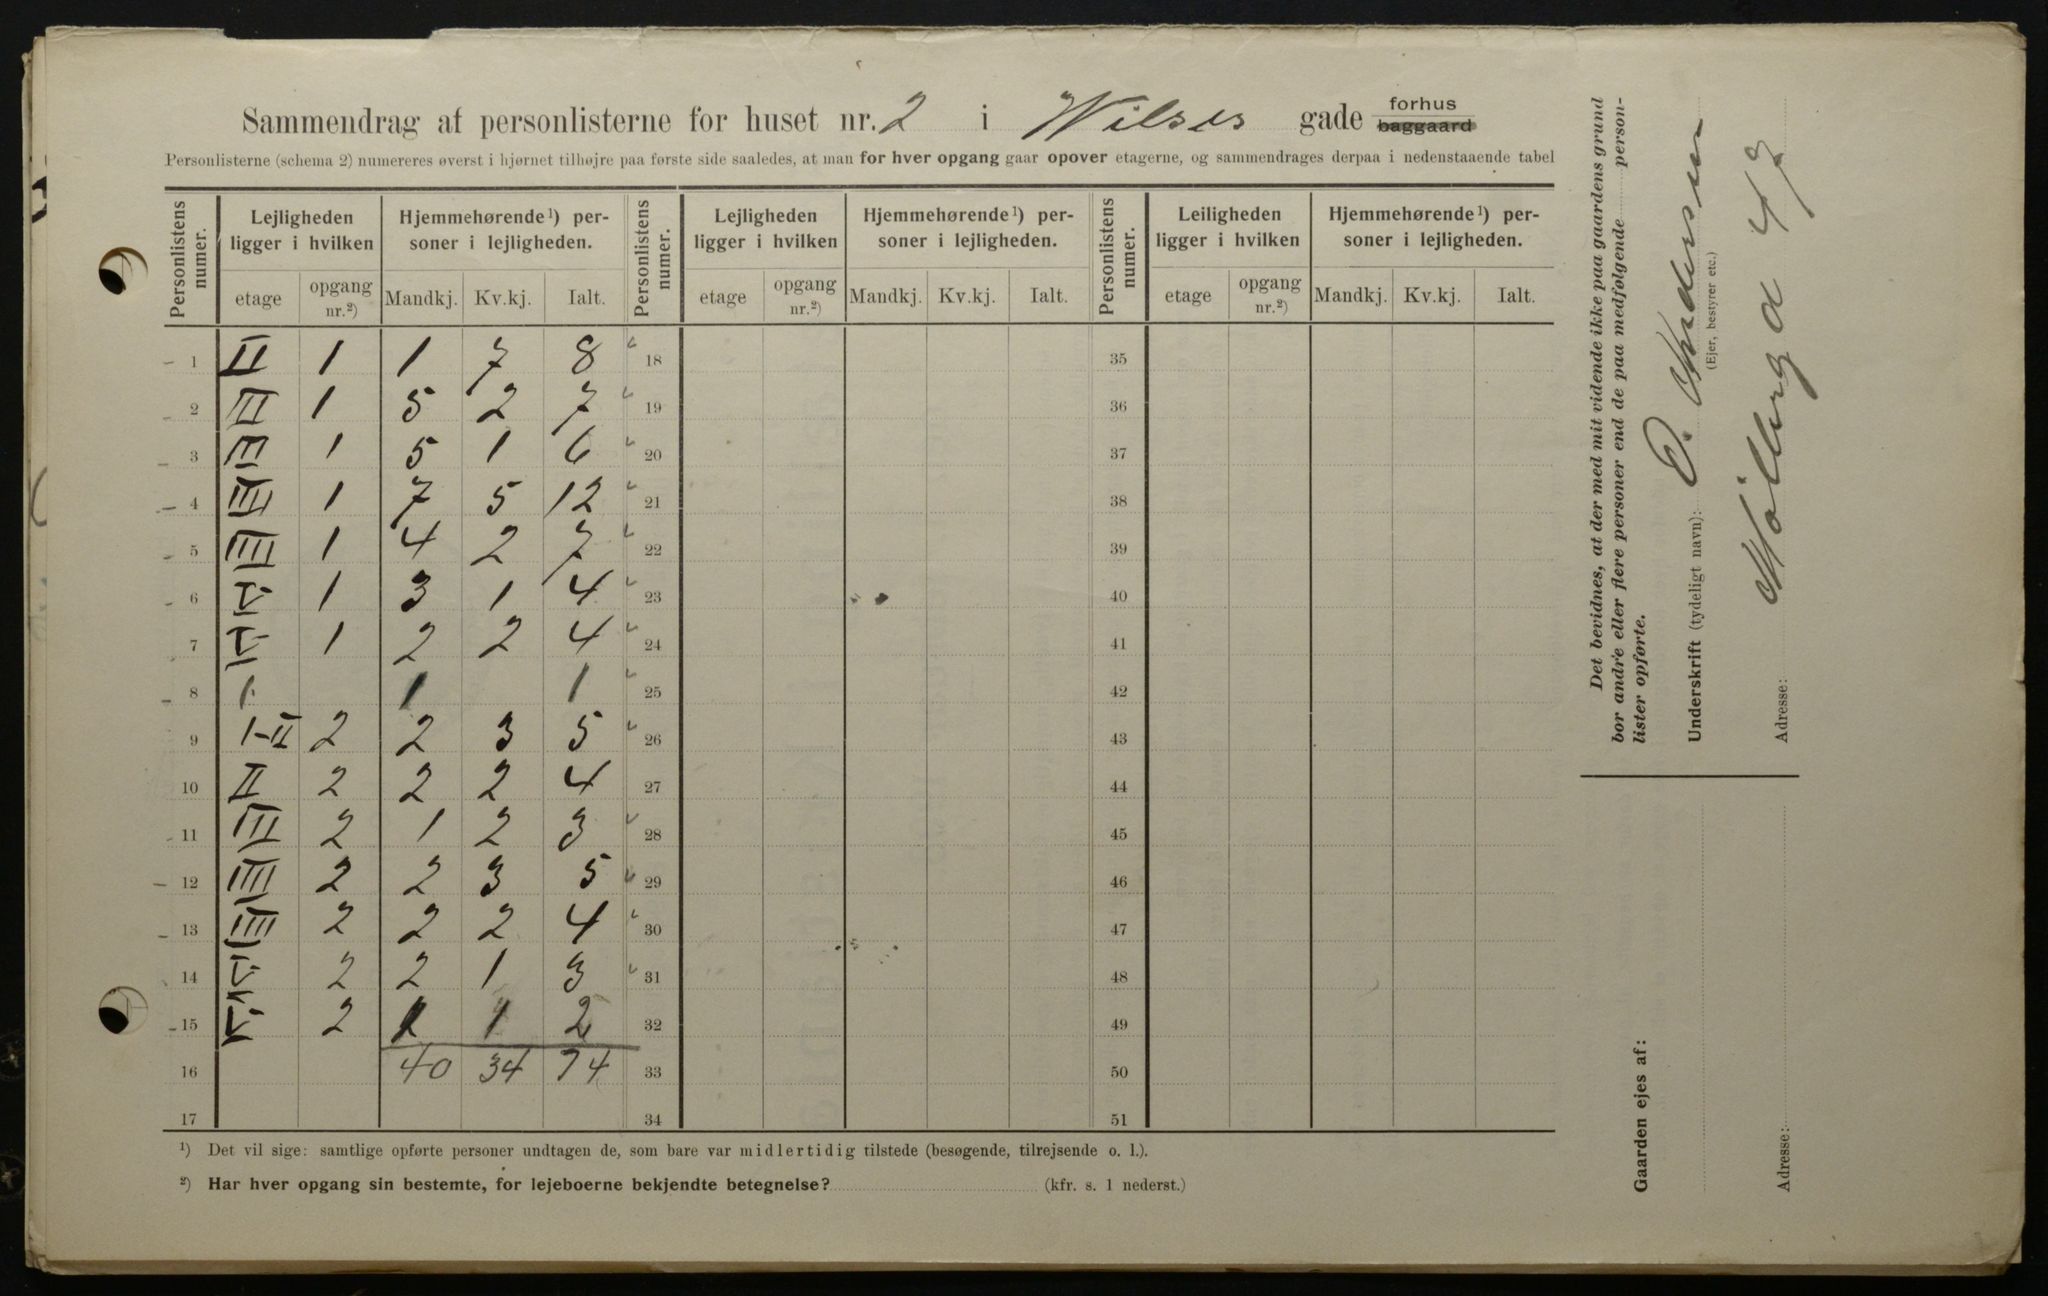 Sammendrag af personlisterne for huset nr. 2 i Wilses gade forhus baggaard
Personlisterne (schema 2) numereres øverst i hjørnet tilhøjre paa første side saaledes, at man for hver opgang gaar opover etagerne, og sammendrages derpaa i nedenstaaende tabel
Personlistens numer. Lejligheden ligger i hvilken Hjemmehørende¹) personer i lejligheden. Personlistens numer. Lejligheden ligger i hvilken Hjemmehørende¹) personer i lejligheden. Personlistens numer. Leiligheden ligger i hvilken Hjemmehørende¹) personer i lejligheden.
etage opgang nr.²) Mandkj. Kv.kj. Ialt. etage opgang nr.²) Mandkj. Kv.kj. Ialt. etage opgang nr.²) Mandkj. Kv.kj. Ialt.
1 II 1 1 7 8 18 35
2 II 1 5 2 7 19 36
3 III 1 5 1 6 20 37
4 III 1 7 5 12 21 38
5 III 1 4 2 7 22 39
6 IV 1 3 1 4 23 40
7 IV 1 2 2 4 24 41
8 1 1 1 25 42
9 I-II 2 2 3 5 26 43
10 II 2 2 2 4 27 44
11 III 2 1 2 3 28 45
12 III 2 2 3 5 29 46
13 III 2 2 2 4 30 47
14 IV 2 2 1 3 31 48
15 IV 2 1 1 2 32 49
16 40 34 74 33 50
17 34 51
¹) Det vil sige: samtlige opførte personer undtagen de, som bare var midlertidig tilstede (besøgende, tilrejsende o. l.).
²) Har hver opgang sin bestemte, for lejeboerne bekjendte betegnelse? (kfr. s. 1 nederst.)
Det bevidnes, at der med mit vidende ikke paa gaardens grund
bor andre eller flere personer end de paa medfølgende personlister opførte.
Underskrift (tydeligt navn): O. Andersen
(Ejer, bestyrer etc.)
Adresse: Møllergd 49
Gaarden ejes af:
Adresse: